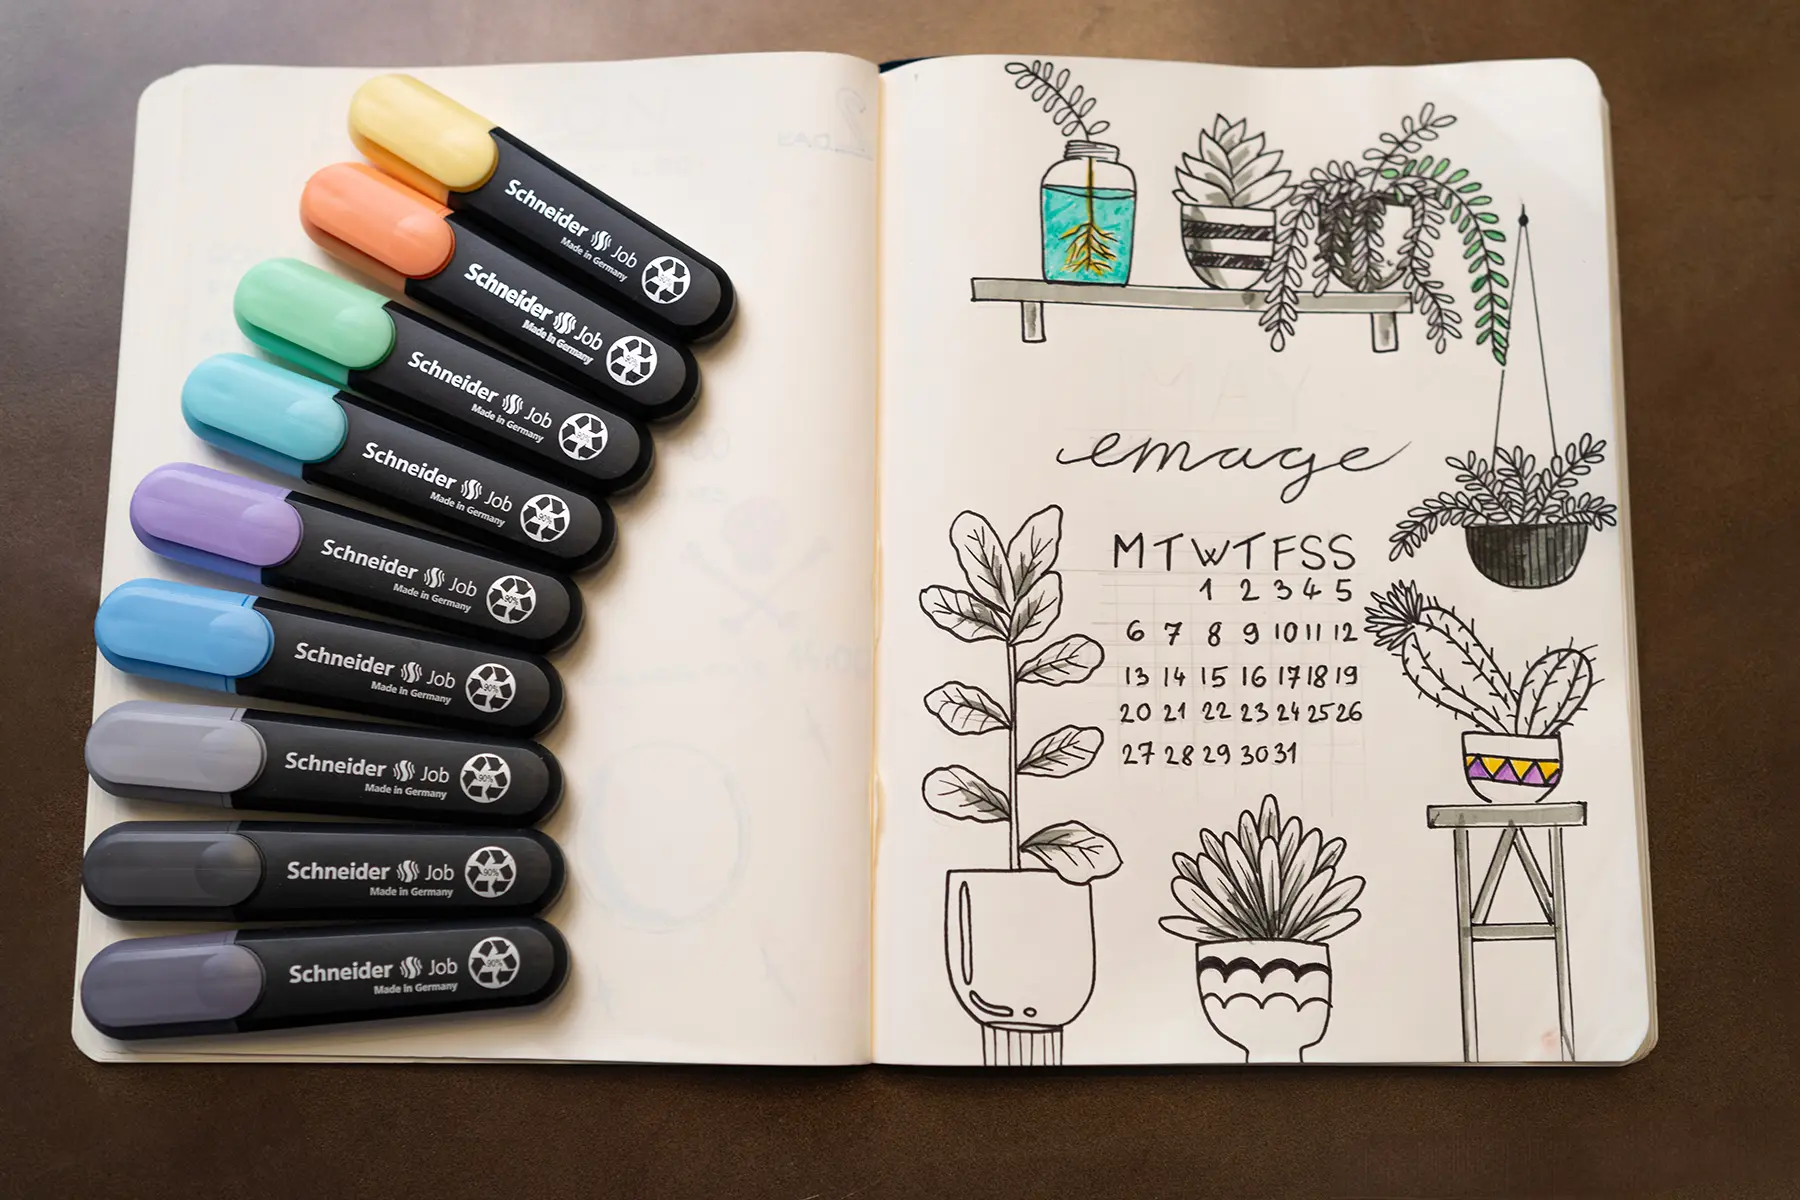 Schneider Job
Made in Germany
90%
Schneider Job
Made in Germany
90%
Schneider Job
Made in Germany
90%
Schneider Job
Made in Germany
90%
Schneider Job
Made in Germany
90%
Schneider Job
Made in Germany
90%
Schneider Job
Made in Germany
90%
Schneider Job
Made in Germany
90%
Schneider Job
Made in Germany
90%
2
DAY
MAY
emage
M T W T F S S
1 2 3 4 5
6 7 8 9 10 11 12
13 14 15 16 17 18 19
20 21 22 23 24 25 26
27 28 29 30 31